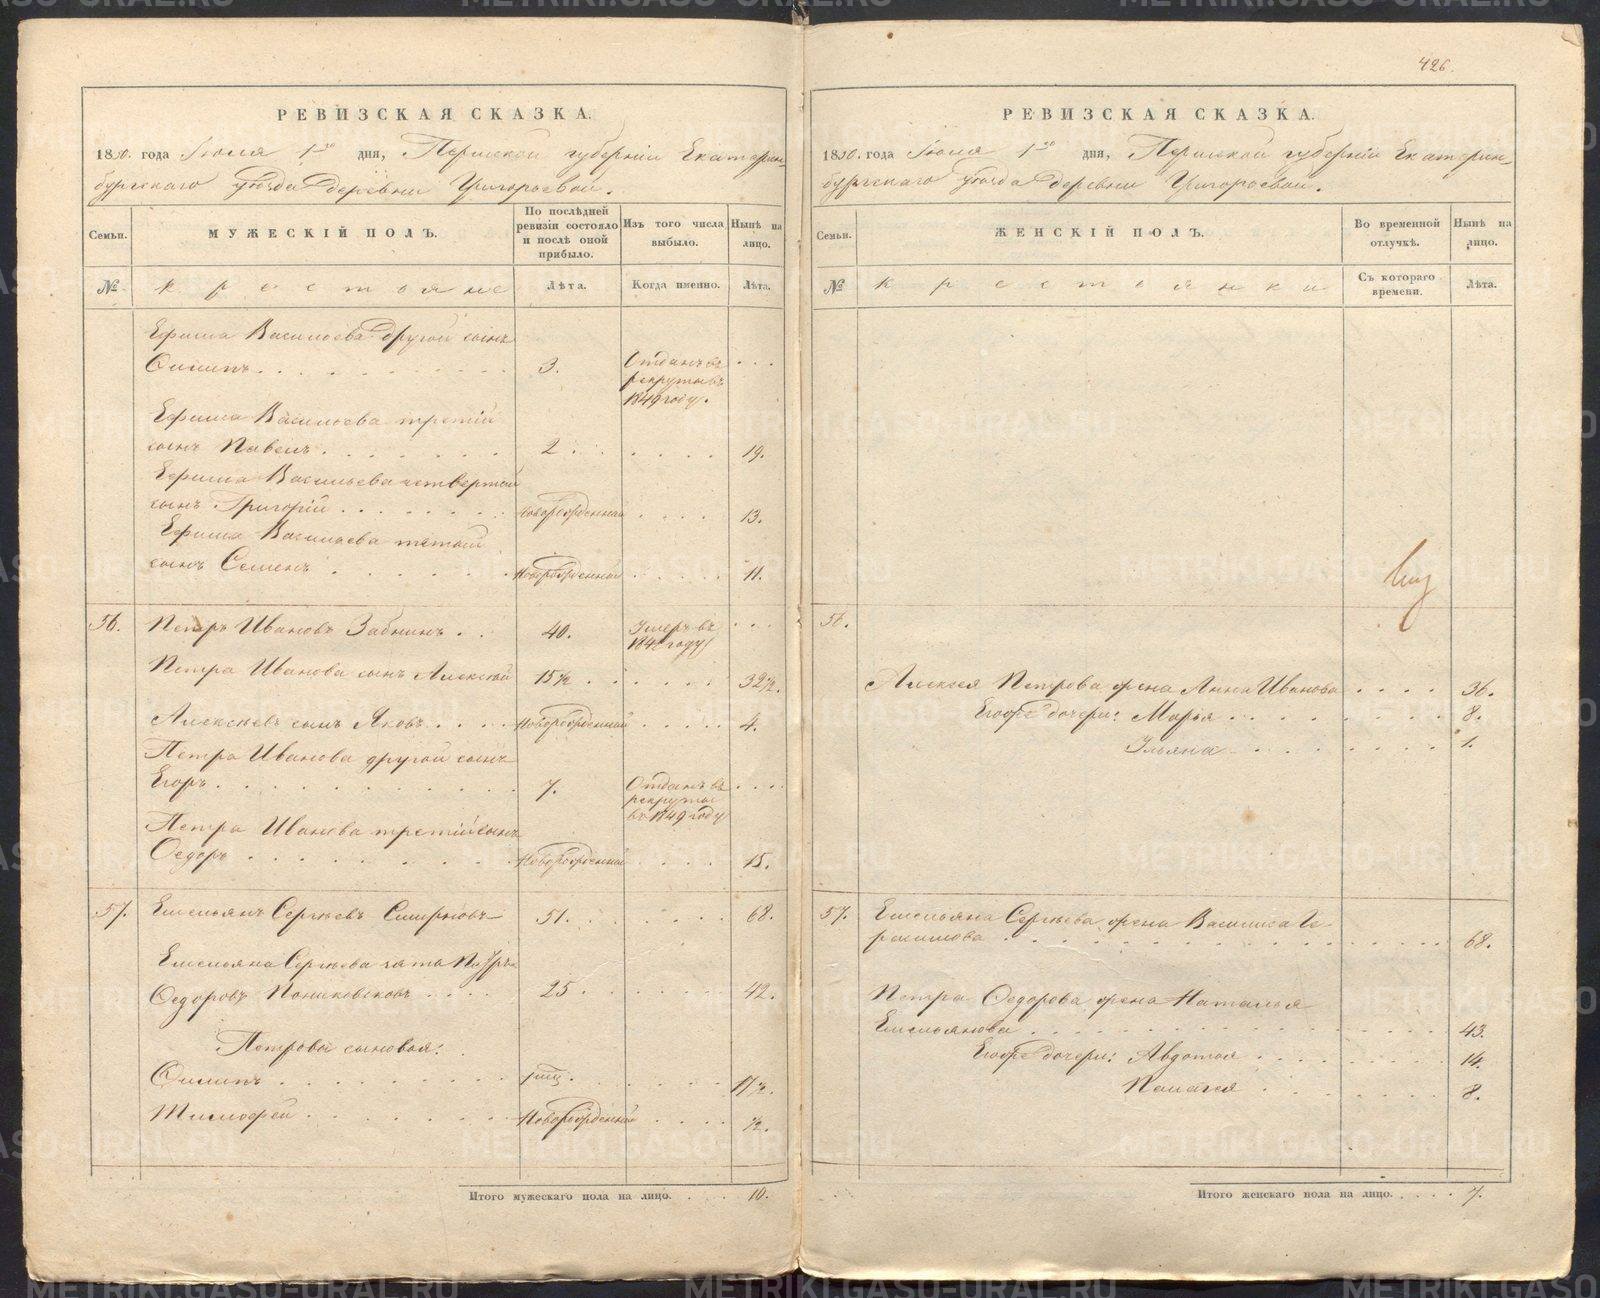 426.
РЕВИЗСКАЯ СКАЗКА.
1850. года Іюля 1го дня, Пермской губерніи Екатерин-
бургскаго уѣзда деревни Григорьевой.
Семьи.
МУЖЕСКІЙ ПОЛЪ.
По послѣдней ревизіи состояло и послѣ оной прибыло.
Изъ того числа выбыло.
Нынѣ на лицо.
№
Крестьяне
Лѣта.
Когда именно.
Лѣта.
Ефима Васильева другой сынъ
Осипъ. 3. Отданъ въ . . .
рекруты въ
1849 году.
Ефима Васильева третій
сынъ Павелъ. 2. 19.
Ефима Васильева четвертой
сынъ Григорій новорожденный 13.
Ефима Васильева пятый
сынъ Семенъ новорожденный 11.
56. Петръ Ивановъ 40. Умеръ въ . . .
году
Петра Иванова сынъ Алексѣй 15½ 32½.
Алексѣевъ сынъ Яковъ новорожденный 4.
Петра Иванова другой сынъ
Егоръ. 7. Отданъ въ . . .
рекруты
въ 1849 году
Петра Иванова третій сынъ
Ѳедоръ новорожденный 15.
57. Емельянъ Сергѣевъ Смирновъ 51. 68.
Емельяна Сергѣева зять Петръ
Ѳедоровъ 25. 42.
Петровы сыновья:
Осипъ 17½.
Тимофей новорожденный ½.
Итого мужескаго пола на лицо. . . . . 10.
РЕВИЗСКАЯ СКАЗКА.
1850. года Іюля 1го дня, Пермской губерніи Екатерин-
бургскаго уѣзда деревни Григорьевой.
Семьи.
ЖЕНСКІЙ ПОЛЪ.
Во временной отлучкѣ.
Нынѣ на лицо.
№
Крестьянки
Съ котораго времени.
Лѣта.
56.
Алексея Петрова жена Анна Иванова . . . . 36.
Егожъ дочери: Марья 8.
Ульяна 1.
57. Емельяна Сергѣева жена Василиса Ге-
расимова 68.
Петра Ѳедорова жена Наталья
Емельянова 43.
Егожъ дочери: Авдотья 14.
Пелагея 8.
Итого женскаго пола на лицо. . . . . 7.
METRIKI.GASO-URAL.RU